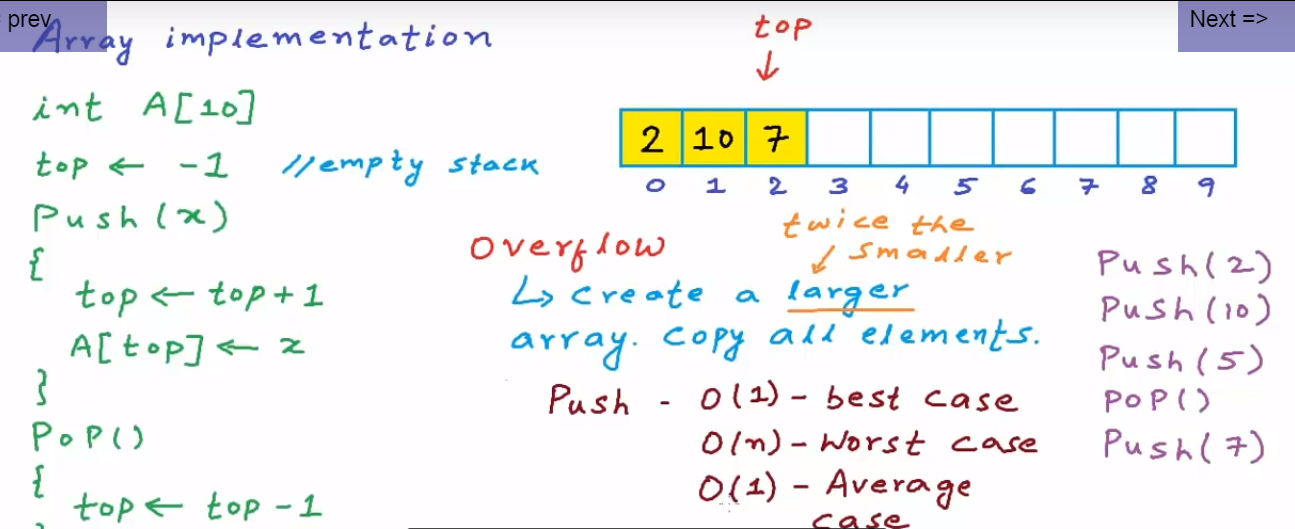 prev
Next =>
Array implementation
int A[10]
top ← -1 //empty stack
Push(x)
{
top ← top+1
A[top] ← x
}
PoP()
{
top ← top -1
top
↓
2 10 7
0 1 2 3 4 5 6 7 8 9
Overflow
twice the
smaller
↳ create a larger
array. copy all elements.
Push - O(1) - best case
O(n) - Worst case
O(1) - Average
case
Push(2)
Push(10)
Push(5)
PoP()
Push(7)